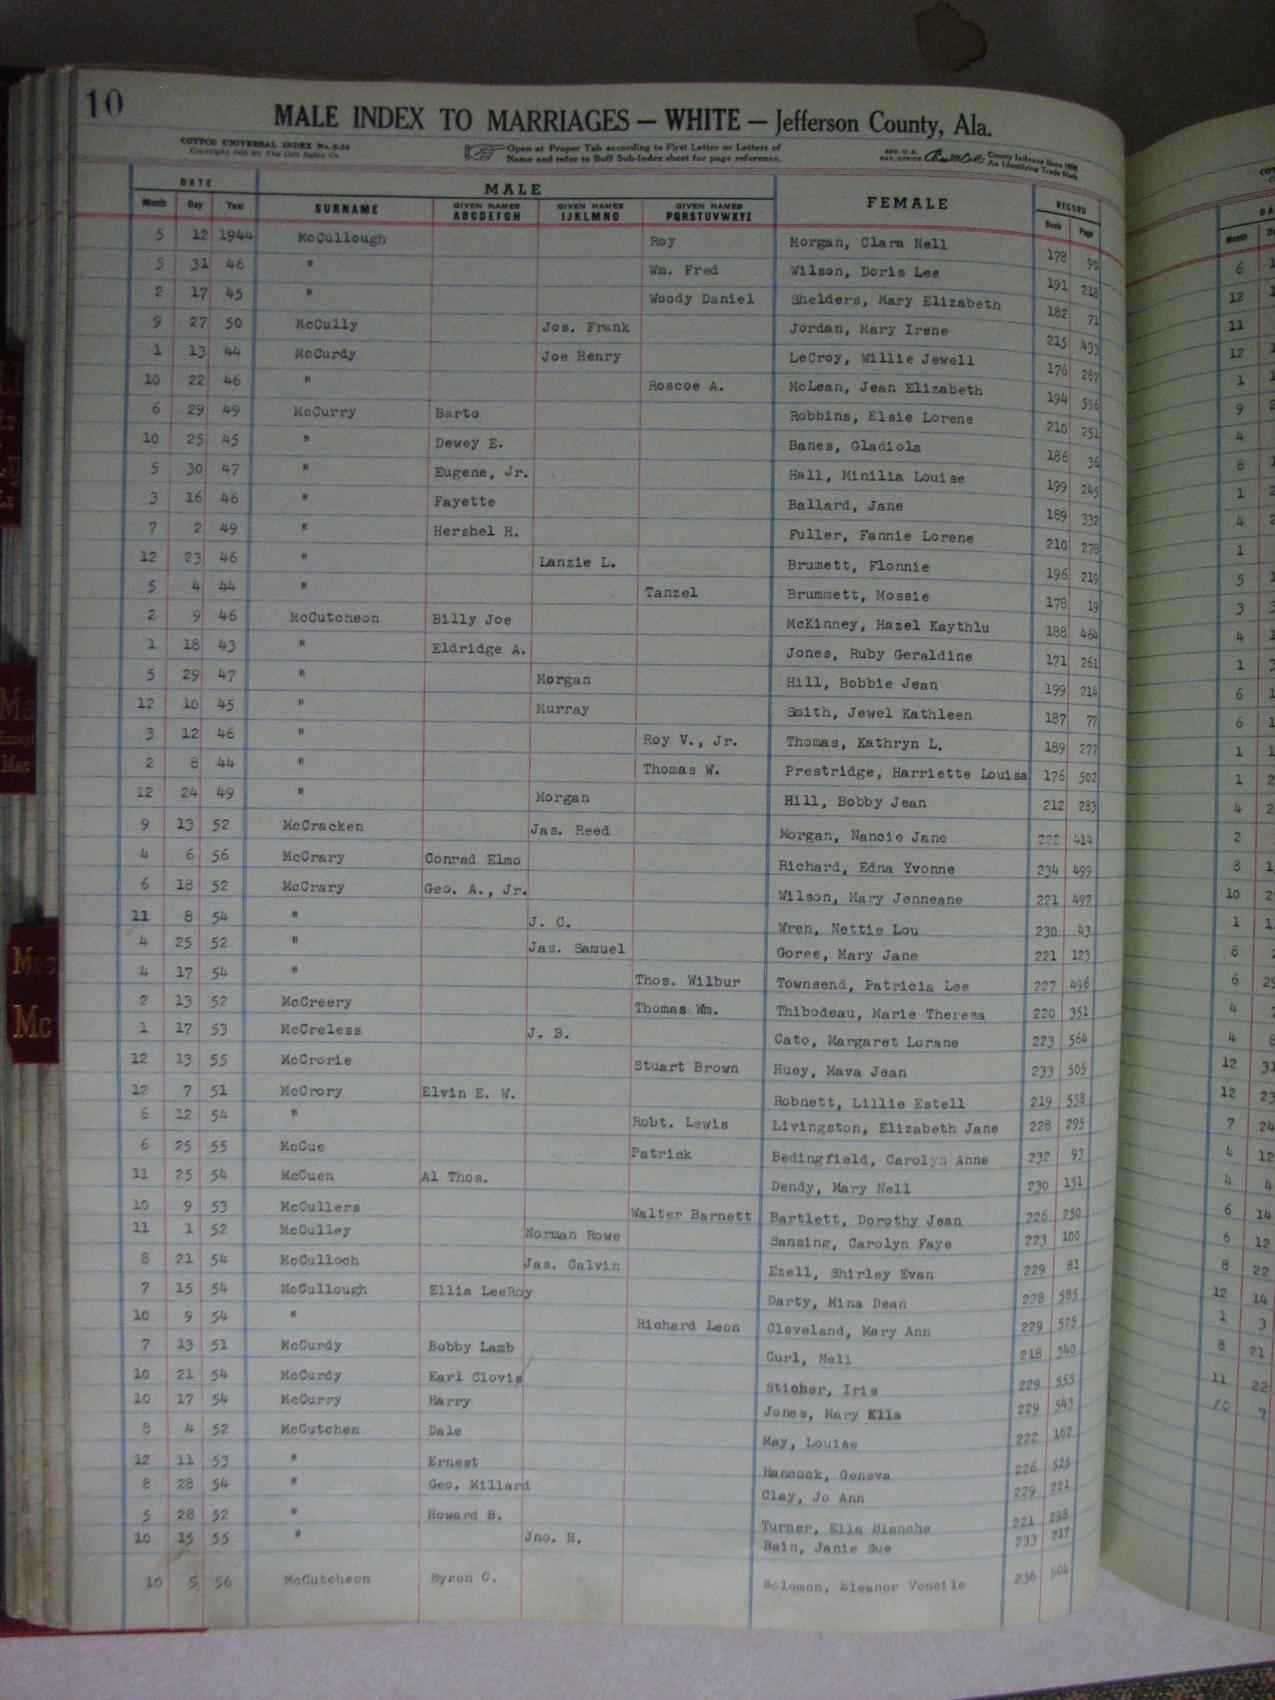 10
MALE INDEX TO MARRIAGES — WHITE — Jefferson County, Ala.
COTTCO UNIVERSAL INDEX No.
Open at Proper Tab according to First Letter or Letters of
Name and refer to Buff Sub-Index sheet for page reference.
County Indexes Since 1888
An Identifying Trade Mark
DATE MALE FEMALE RECORD
Month Day Year SURNAME GIVEN NAMES ABCDEFGH GIVEN NAMES IJKLMNO GIVEN NAMES PQRSTUVWXYZ Book Page
5 12 1944 McCullough Roy Morgan, Clara Nell 178 90
5 31 46 " Wm. Fred Wilson, Doris Lee 191 218
2 17 45 " Woody Daniel Shelders, Mary Elizabeth 182 71
9 27 50 McCully Jos. Frank Jordan, Mary Irene 215 433
1 13 44 McCurdy Joe Henry LeCroy, Willie Jewell 176 287
10 22 46 " Roscoe A. McLean, Jean Elizabeth 194 596
6 29 49 McCurry Barto Robbins, Elsie Lorene 210 251
10 25 45 " Dewey E. Banes, Gladiola 186 36
5 30 47 " Eugene, Jr. Hall, Minilia Louise 199 245
3 16 46 " Fayette Ballard, Jane 189 332
7 2 49 " Hershel H. Fuller, Fannie Lorene 210 278
12 23 46 " Lanzie L. Brumett, Flonnie 196 219
5 4 44 " Tanzel Brummett, Mossie 178 19
2 9 46 McCutcheon Billy Joe McKinney, Hazel Kaythlu 188 464
1 18 43 " Eldridge A. Jones, Ruby Geraldine 171 261
5 29 47 " Morgan Hill, Bobbie Jean 199 214
12 10 45 " Murray Smith, Jewel Kathleen 187 77
3 12 46 " Roy V., Jr. Thomas, Kathryn L. 189 277
2 8 44 " Thomas W. Prestridge, Harriette Louisa 176 502
12 24 49 " Morgan Hill, Bobby Jean 212 283
9 13 52 McCracken Jas. Reed Morgan, Nancie Jane 222 414
4 6 56 McCrary Conrad Elmo Richard, Edna Yvonne 234 499
6 18 52 McCrary Geo. A., Jr. Wilson, Mary Jenneane 221 497
11 8 54 " J. C. Wren, Nettie Lou 230 43
4 25 52 " Jas. Samuel Goree, Mary Jane 221 123
4 17 54 " Thos. Wilbur Townsend, Patricia Lee 227 496
2 13 52 McCreery Thomas Wm. Thibodeau, Marie Theresa 220 351
1 17 53 McCreless J. B. Cato, Margaret Lorane 223 564
12 13 55 McCrorie Stuart Brown Huey, Mava Jean 233 505
12 7 51 McCrory Elvin E. W. Robnett, Lillie Estell 219 558
6 12 54 " Robt. Lewis Livingston, Elizabeth Jane 228 295
6 25 55 McCue Patrick Bedingfield, Carolyn Anne 232 93
11 25 54 McCuen Al Thos. Dendy, Mary Nell 230 151
10 9 53 McCullers Walter Barnett Bartlett, Dorothy Jean 226 250
11 1 52 McCulley Norman Rowe Sansing, Carolyn Faye 223 100
8 21 54 McCulloch Jas. Calvin Ezell, Shirley Evan 229 81
7 15 54 McCullough Ellia LeeRoy Darty, Mina Dean 228 585
10 9 54 " Richard Leon Cleveland, Mary Ann 229 525
7 13 51 McCurdy Bobby Lamb Curl, Nell 218 340
10 21 54 McCurdy Earl Clovis Sticher, Iris 229 555
10 17 54 McCurry Harry Jones, Mary Ella 229 543
8 4 52 McCutchen Dale May, Louise 222 162
12 11 53 " Ernest Hancock, Geneva 226 525
8 28 54 " Geo. Millard Clay, Jo Ann 229 221
5 28 52 " Howard B. Turner, Ella Blanche 221 298
10 15 55 " Jno. H. Bain, Janie Sue 233 217
10 5 56 McCutcheon Byron C. Solomon, Eleanor Voncile 236 504
Ma
Except
Mac
Mac
Mc